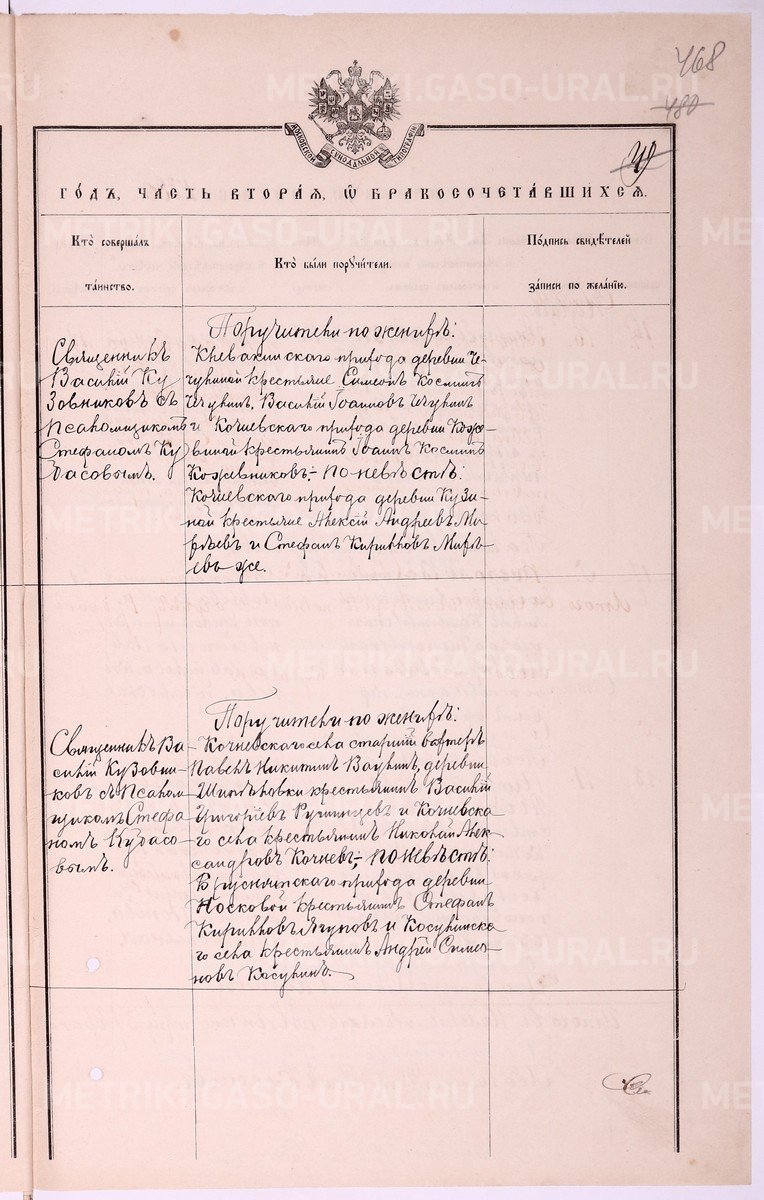 468
480
МОСКОВСКОЙ СѴНОДАЛЬНОЙ ТИПОГРАФІИ
ГО́ДЪ, ЧА́СТЬ ВТОРА́Я, Ѡ҆ БРАКОСОЧЕТА́ВШИХСЯ.
Кто̀ соверша́лъ
та́инство.
Кто̀ бы́ли порꙋчи́тели.
По́дпись свидѣ́телей
за́писи по жела́нію.
Священникъ
Василій Ку
зовниковъ съ
Псаломщикомъ
Стефаномъ Ку
дасовымъ.
Поручители по женихѣ:
Клевакинскаго прихода деревни Че-
чулиной крестьяне Симеонъ Косминъ
Чечулинъ, Василій Іоанновъ Чечулинъ
и Кочневскаго прихода деревни Коже-
виной крестьянинъ Іоаннъ Косминъ
Кожевниковъ;- по невѣстѣ:
Кочневскаго прихода деревни Кузи-
ной крестьяне Алексій Андреевъ Ми-
хѣевъ и Стефанъ Кирилловъ Михѣ-
евъ же.
Священникъ Ва-
силій Кузовни-
ковъ съ Псалом
щикомъ Стефа
номъ Кудасо-
вымъ.
Поручители по женихѣ:
Кочневскаго села старшій вахтеръ
Павелъ Никитинъ Ваулинъ, деревни
крестьянинъ Василій
Григоріевъ и Кочневска
го села крестьянинъ Николай Алек
сандровъ Кочневъ;- по невѣстѣ:
Бруснятскаго прихода деревни
Носковой крестьянинъ Стефанъ
Кирилловъ Ягуповъ и Косулинска
го села крестьянинъ Андрей Симео
новъ Косулинъ.
METRIKI.GASO-URAL.RU